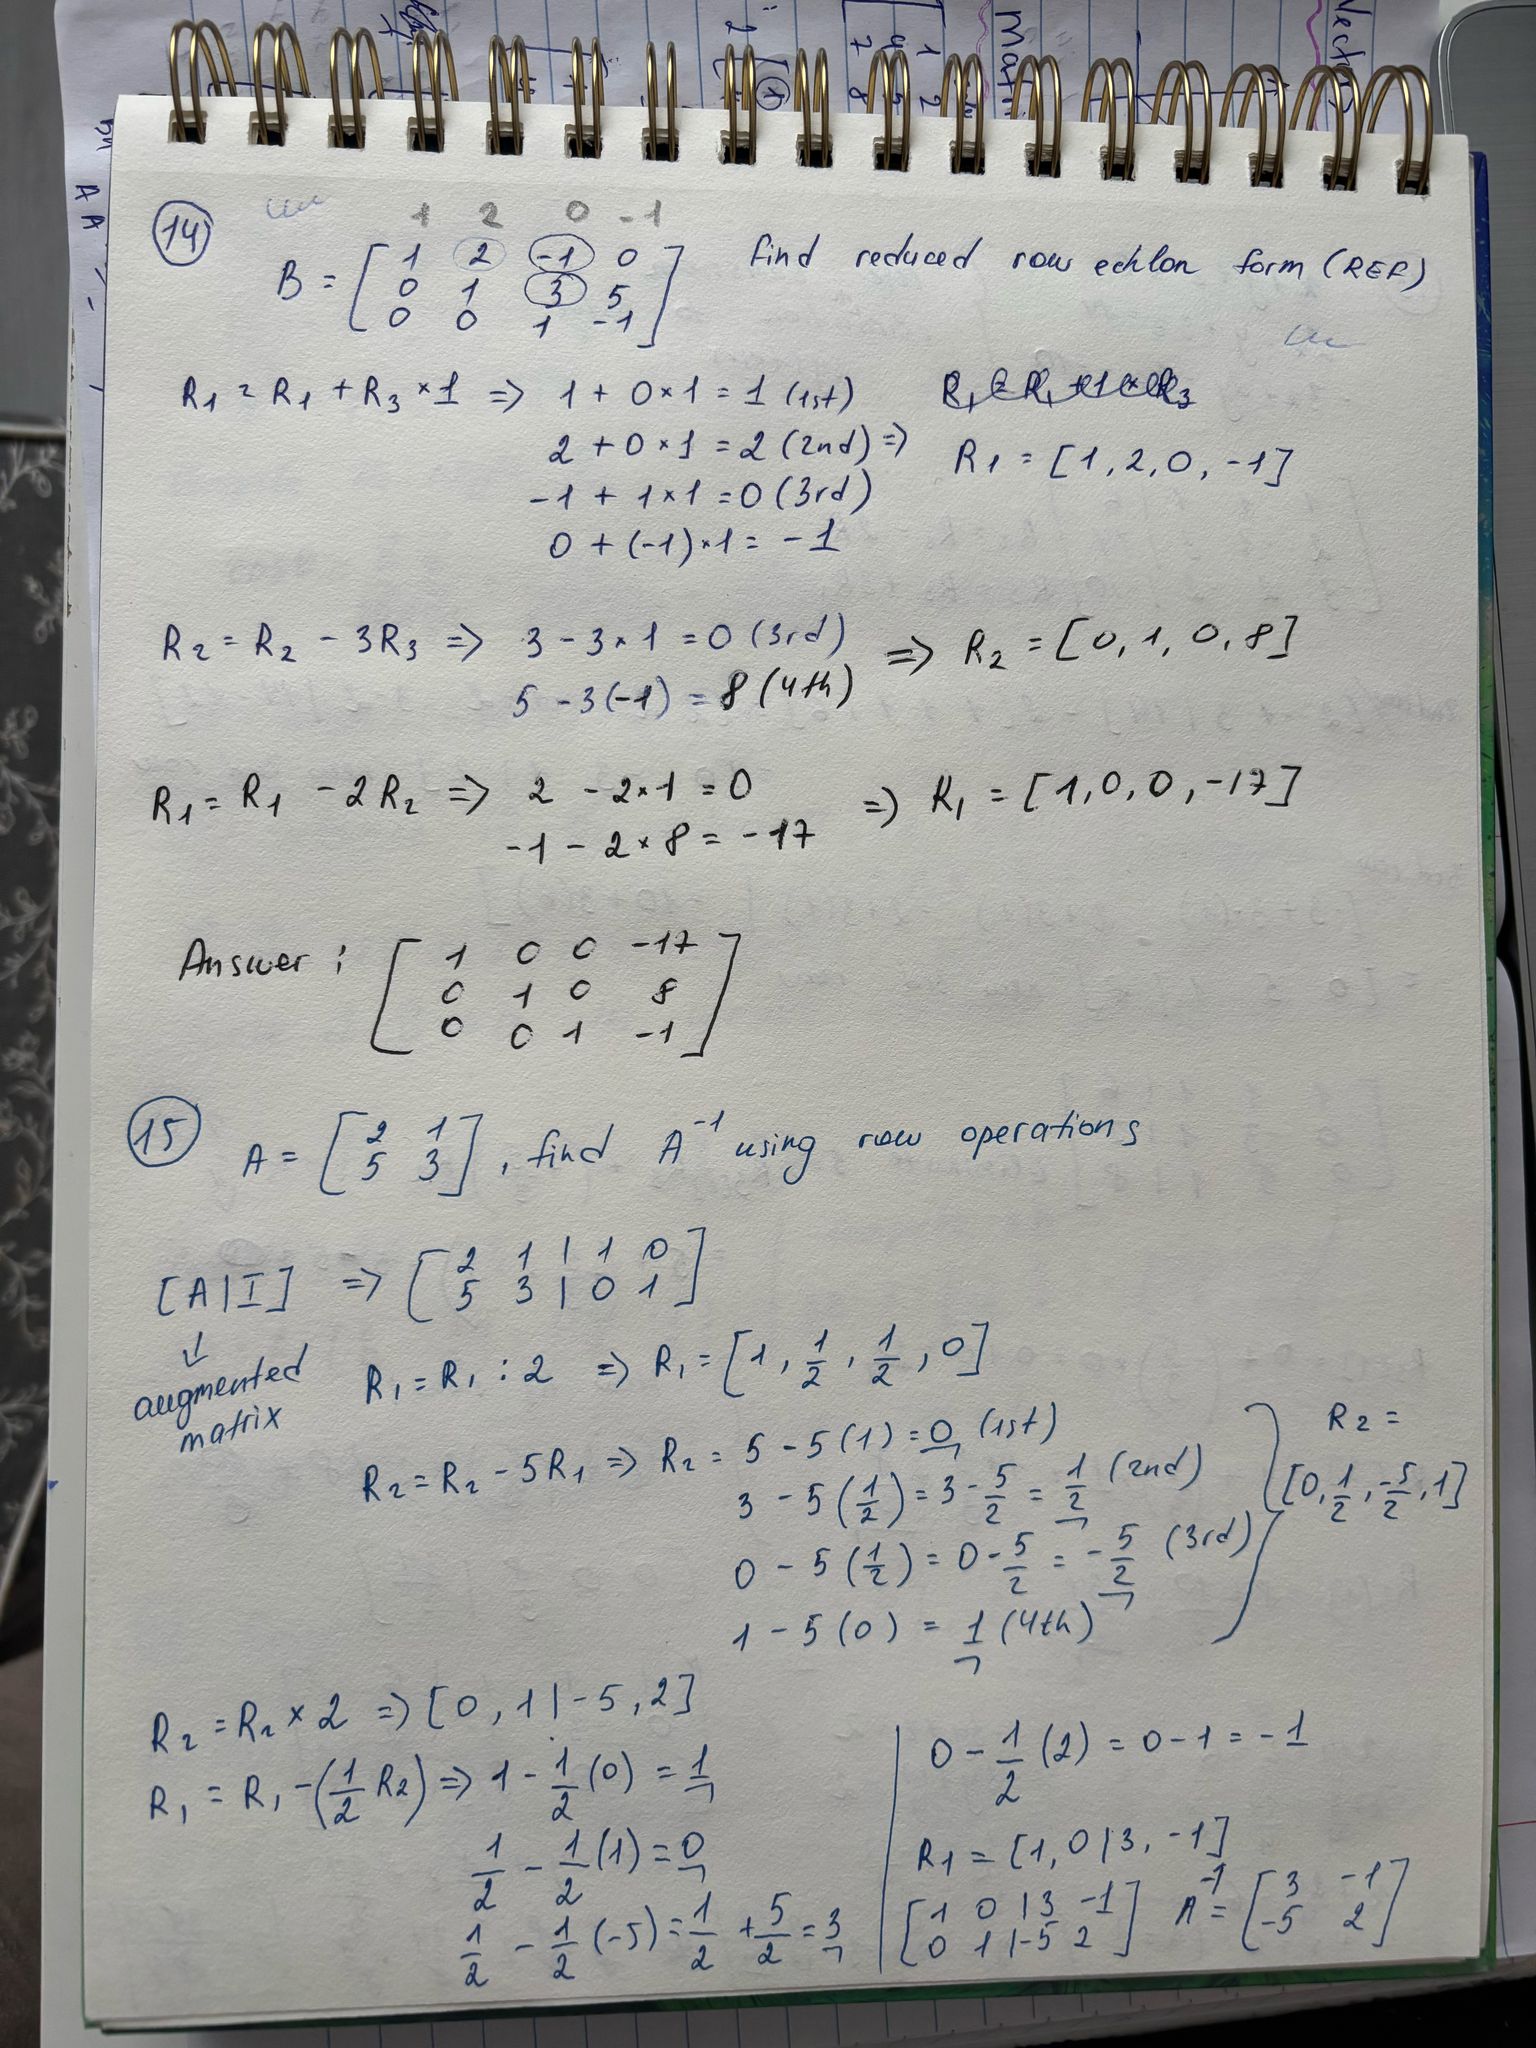 14
1 2 0 -1
B = [ 1 2 -1 0
0 1 3 5
0 0 1 -1 ]
find reduced row echlon form (REF)
R1 = R1 + R3 × 1 => 1 + 0×1 = 1 (1st)
2 + 0×1 = 2 (2nd) => R1 = [1, 2, 0, -1]
-1 + 1×1 = 0 (3rd)
0 + (-1)×1 = -1
R2 = R2 - 3R3 => 3 - 3×1 = 0 (3rd) => R2 = [0, 1, 0, 8]
5 - 3(-1) = 8 (4th)
R1 = R1 - 2R2 => 2 - 2×1 = 0 => R1 = [1, 0, 0, -17]
-1 - 2×8 = -17
Answer: [ 1 0 0 -17
0 1 0 8
0 0 1 -1 ]
15
A = [ 2 1
5 3 ], find A⁻¹ using row operations
[A|I] => [ 2 1 | 1 0
5 3 | 0 1 ]
↓
augmented
matrix
R1 = R1 : 2 => R1 = [1, 1/2, 1/2, 0]
R2 = R2 - 5R1 => R2 = 5 - 5(1) = 0 (1st)
3 - 5(1/2) = 3 - 5/2 = 1/2 (2nd)
0 - 5(1/2) = 0 - 5/2 = -5/2 (3rd)
1 - 5(0) = 1 (4th)
R2 =
[0, 1/2, -5/2, 1]
R2 = R2 × 2 => [0, 1 | -5, 2]
R1 = R1 - (1/2 R2) => 1 - 1/2(0) = 1
1/2 - 1/2(1) = 0
1/2 - 1/2(-5) = 1/2 + 5/2 = 3
0 - 1/2(2) = 0 - 1 = -1
R1 = [1, 0 | 3, -1]
[ 1 0 | 3 -1
0 1 | -5 2 ]
A⁻¹ = [ 3 -1
-5 2 ]